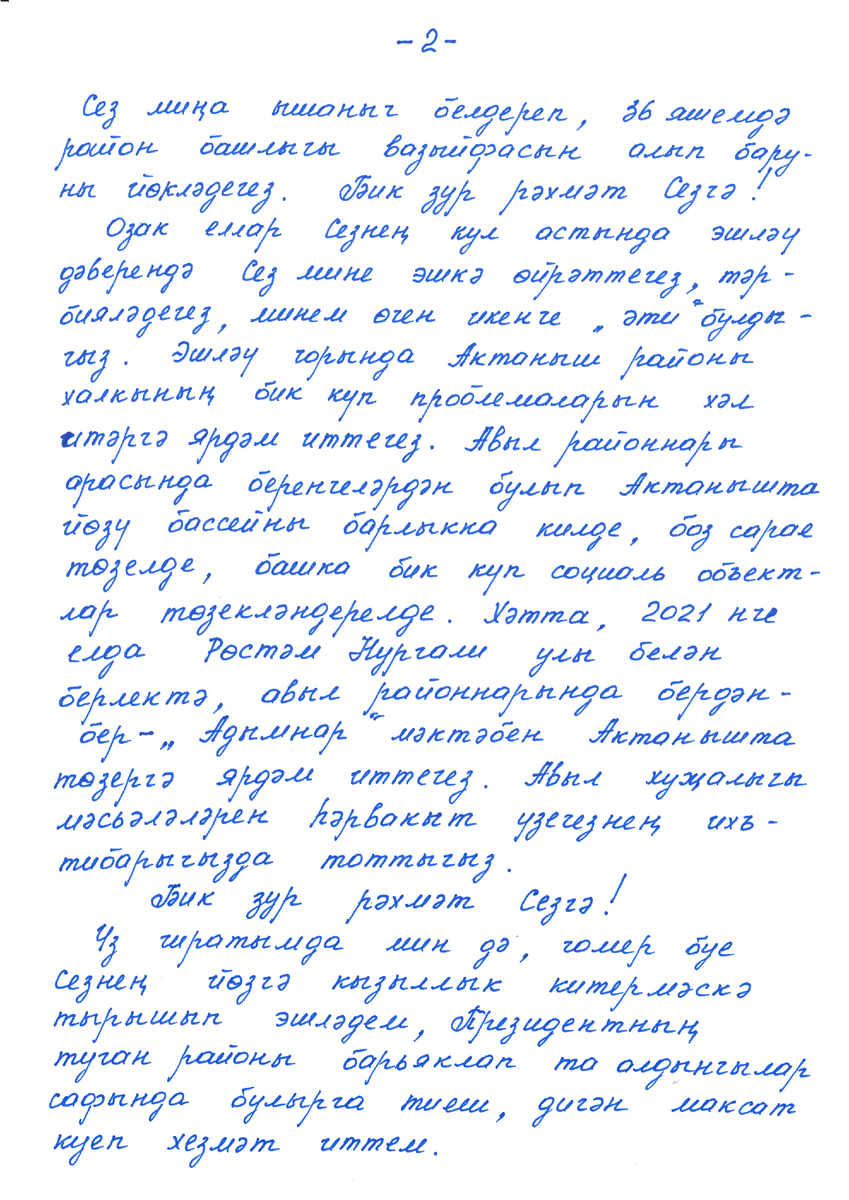 -2-
Сез миңа ышаныч белдереп, 36 яшемдә
район башлыгы вазыйфасын алып бару-
ны йөкләдегез. Бик зур рәхмәт Сезгә!
Озак еллар Сезнең кул астында эшләү
дәверендә Сез мине эшкә өйрәттегез, тәр-
бияләдегез, минем өчен икенче „әти“ булды-
гыз. Эшләү чорында Актаныш районы
халкының бик күп проблемаларын хәл
итәргә ярдәм иттегез. Авыл районнары
арасында беренчеләрдән булып Актанышта
йөзү бассейны барлыкка килде, боз сарае
төзелде, башка бик күп социаль объект-
лар төзекләндерелде. Хәтта, 2021 нче
елда Рөстәм Нургали улы белән
берлектә, авыл районнарында бердән-
бер-„Адымнар“ мәктәбен Актанышта
төзергә ярдәм иттегез. Авыл хуҗалыгы
мәсьәләләрен һәрвакыт үзегезнең ихъ-
тибарыгызда тоттыгыз.
Бик зур рәхмәт Сезгә!
Үз чиратымда мин дә, гомер буе
Сезнең йөзгә кызыллык китермәскә
тырышып эшләдем, Президентның
туган районы барьяклап та алдынгылар
сафында булырга тиеш, дигән максат
куеп хезмәт иттем.